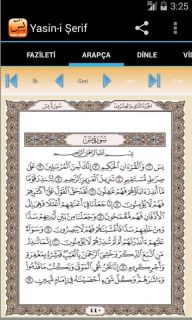 3:25
Yasin-i Şerif
FAZİLETİ
ARAPÇA
DİNLE
İlk
Geri
سُورَةُ يسٓ
الجزء الثاني والعشرون
سُورَةُ يسٓ
بِسْمِ ٱللَّهِ ٱلرَّحْمَٰنِ ٱلرَّحِيمِ
يسٓ ١ وَٱلْقُرْءَانِ ٱلْحَكِيمِ ٢ إِنَّكَ لَمِنَ ٱلْمُرْسَلِينَ ٣ عَلَىٰ
صِرَٰطٍ مُّسْتَقِيمٍ ٤ تَنزِيلَ ٱلْعَزِيزِ ٱلرَّحِيمِ ٥ لِتُنذِرَ قَوْمًا
مَّآ أُنذِرَ ءَابَآؤُهُمْ فَهُمْ غَٰفِلُونَ ٦ لَقَدْ حَقَّ ٱلْقَوْلُ عَلَىٰٓ أَكْثَرِهِمْ
فَهُمْ لَا يُؤْمِنُونَ ٧ إِنَّا جَعَلْنَا فِىٓ أَعْنَٰقِهِمْ أَغْلَٰلًا فَهِىَ إِلَى
ٱلْأَذْقَانِ فَهُم مُّقْمَحُونَ ٨ وَجَعَلْنَا مِنۢ بَيْنِ أَيْدِيهِمْ سَدًّا
وَمِنْ خَلْفِهِمْ سَدًّا فَأَغْشَيْنَٰهُمْ فَهُمْ لَا يُبْصِرُونَ ٩ وَسَوَآءٌ
عَلَيْهِمْ ءَأَنذَرْتَهُمْ أَمْ لَمْ تُنذِرْهُمْ لَا يُؤْمِنُونَ ١٠ إِنَّمَا تُنذِرُ
مَنِ ٱتَّبَعَ ٱلذِّكْرَ وَخَشِىَ ٱلرَّحْمَٰنَ بِٱلْغَيْبِ فَبَشِّرْهُ بِمَغْفِرَةٍ
وَأَجْرٍ كَرِيمٍ ١١ إِنَّا نَحْنُ نُحْىِ ٱلْمَوْتَىٰ وَنَكْتُبُ مَا قَدَّمُوا۟
وَءَاثَٰرَهُمْ وَكُلَّ شَىْءٍ أَحْصَيْنَٰهُ فِىٓ إِمَامٍ مُّبِينٍ ١٢
٤٤٠